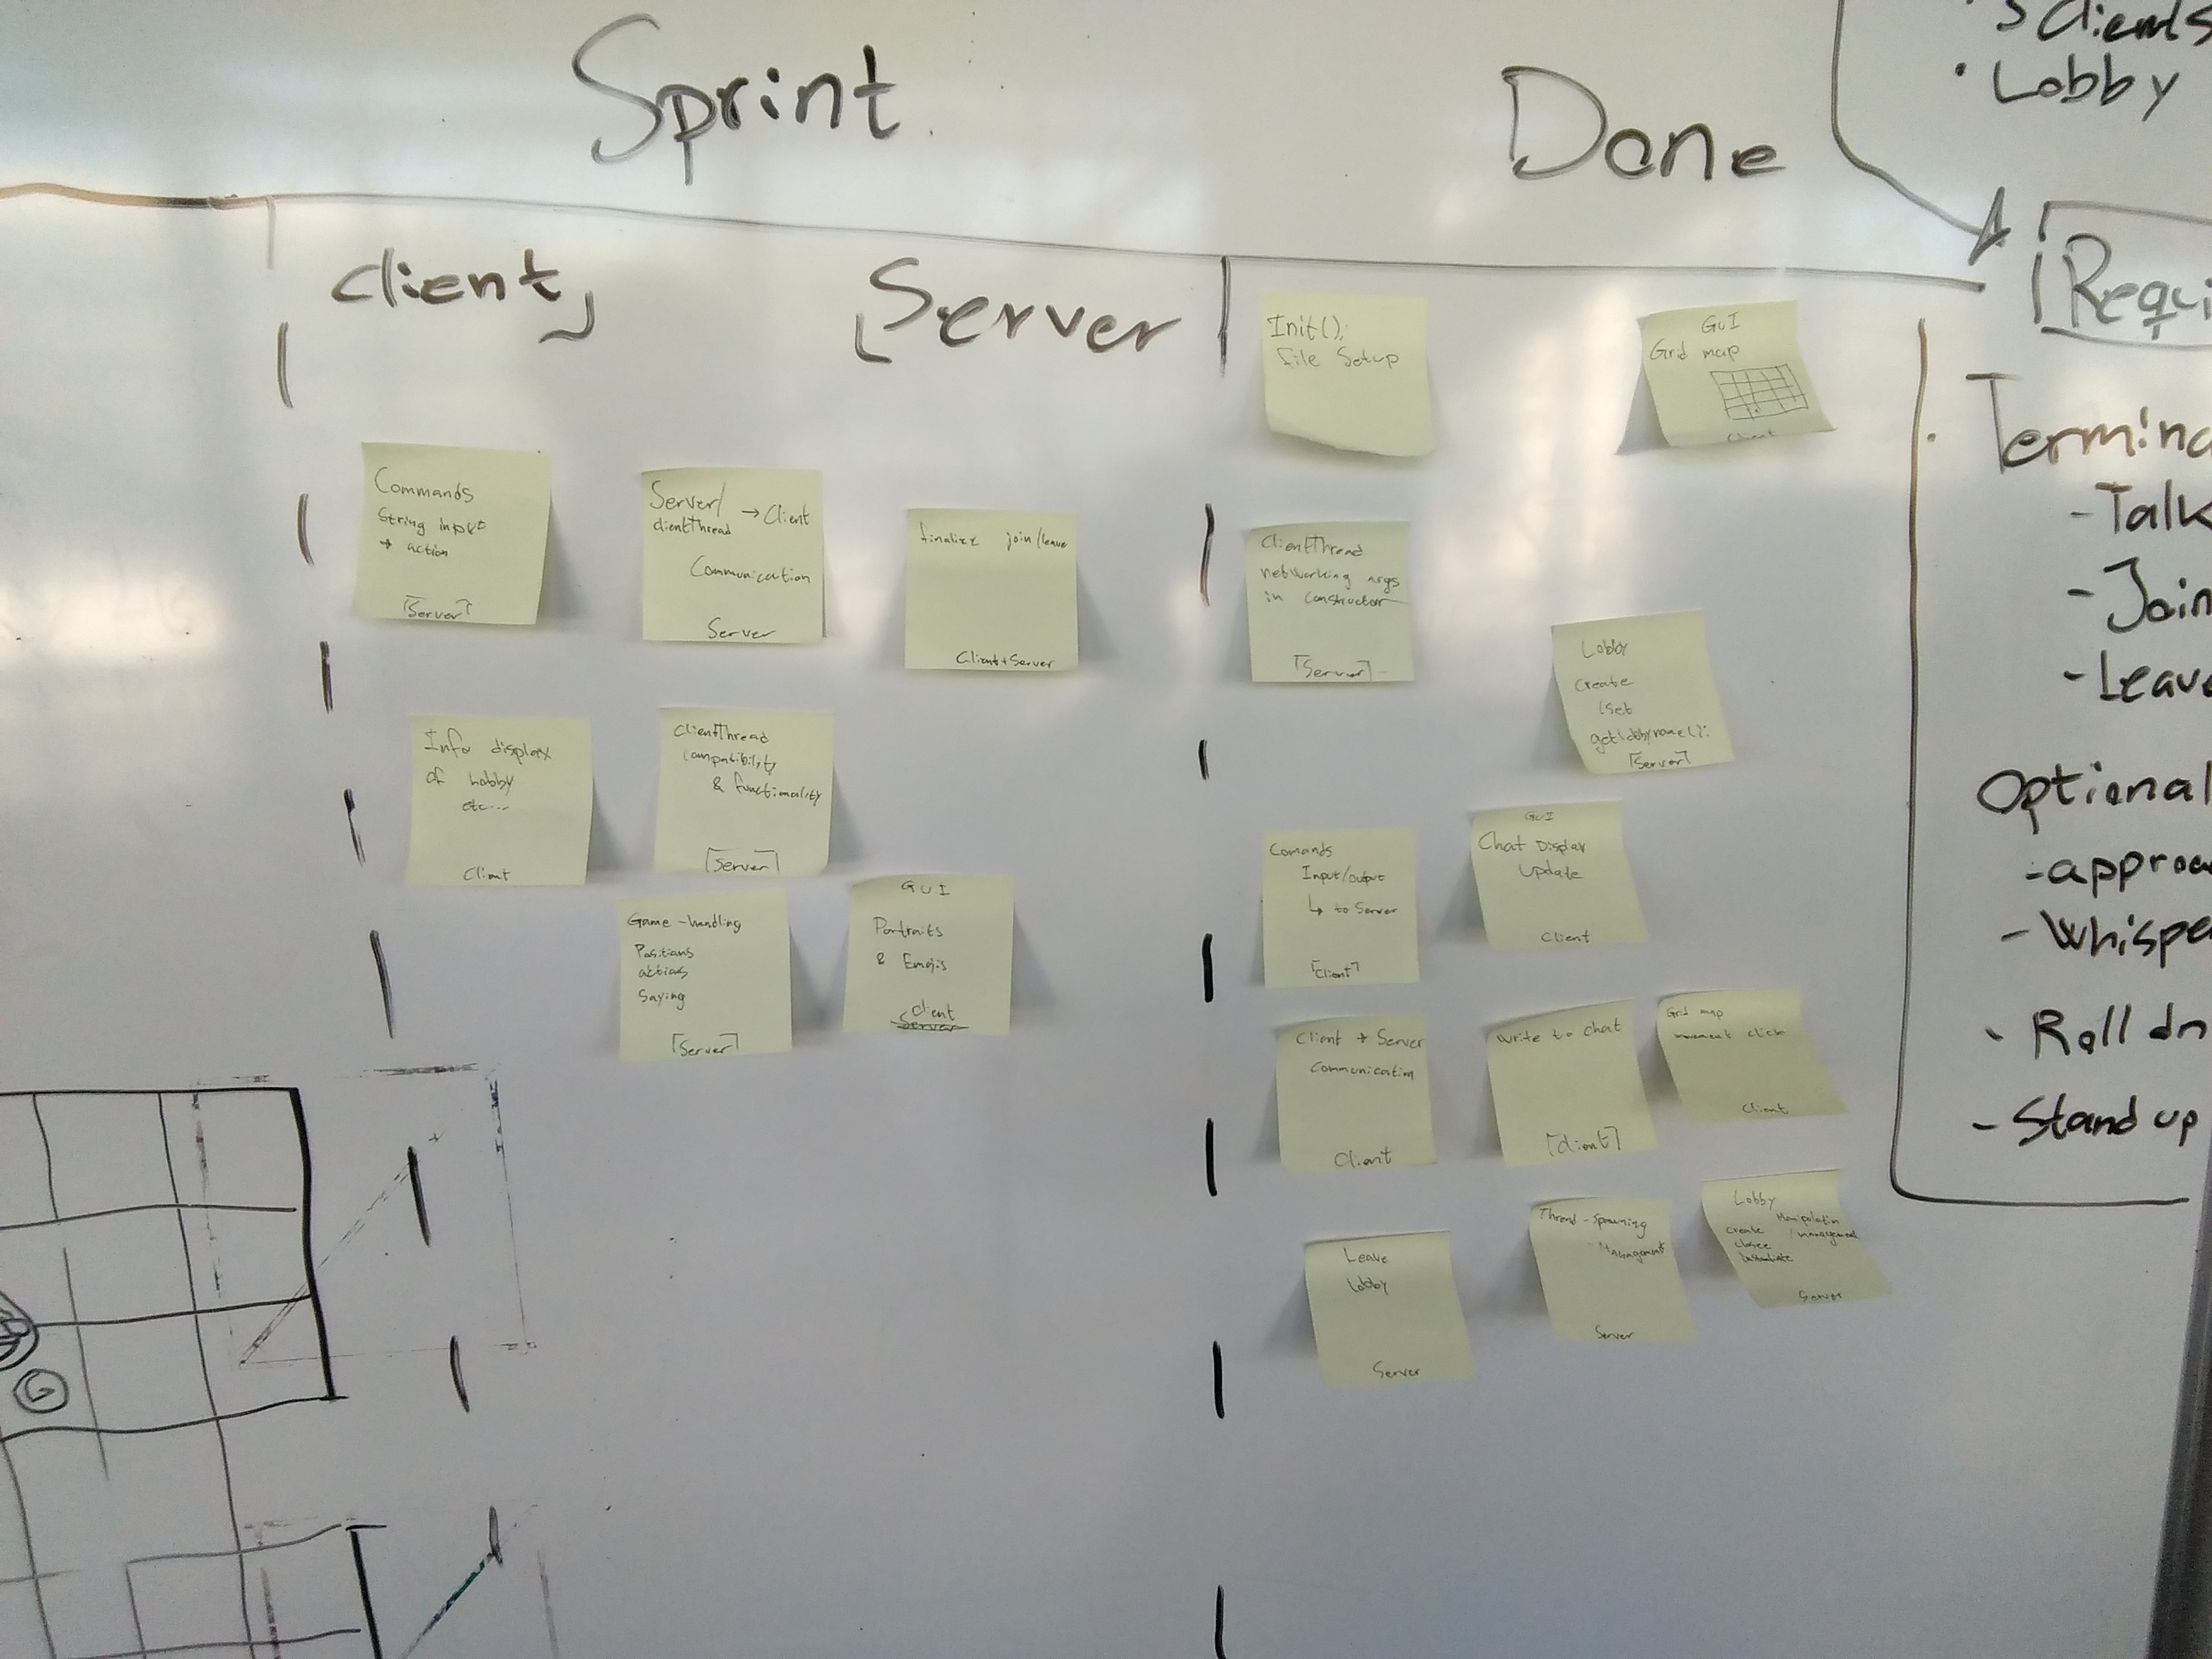 Sprint
Done
Client
Server
Commands
String input
→ action
[Server]
Server/
clientThread → Client
Communication
Server
finalize join/leave
Client+Server
Info display
of Lobby
etc...
Client
ClientThread
compatibility
& functionality
[Server]
Game-handling
Positions
actions
Saying
[Server]
GUI
Portraits
& Emojis
Client
Server
Init();
file Setup
GUI
Grid map
Client
ClientThread
networking args
in constructor
[Server]
Lobby
create
(set
getlobbyname();
[Server]
Comands
Input/output
↳ to Server
[Client]
GUI
Chat Display
Update
Client
Client → Server
Communication
Client
write to chat
[Client]
Grid map
movement click
Client
Leave
Lobby
Server
Thread-spawning
Management
Server
Lobby
Manipulation
create / management
Server
Clients
• Lobby
Requi
· Termina
- Talk
- Join
- Leave
Optional
- approa
- Whispe
- Roll dn
- Stand up
G